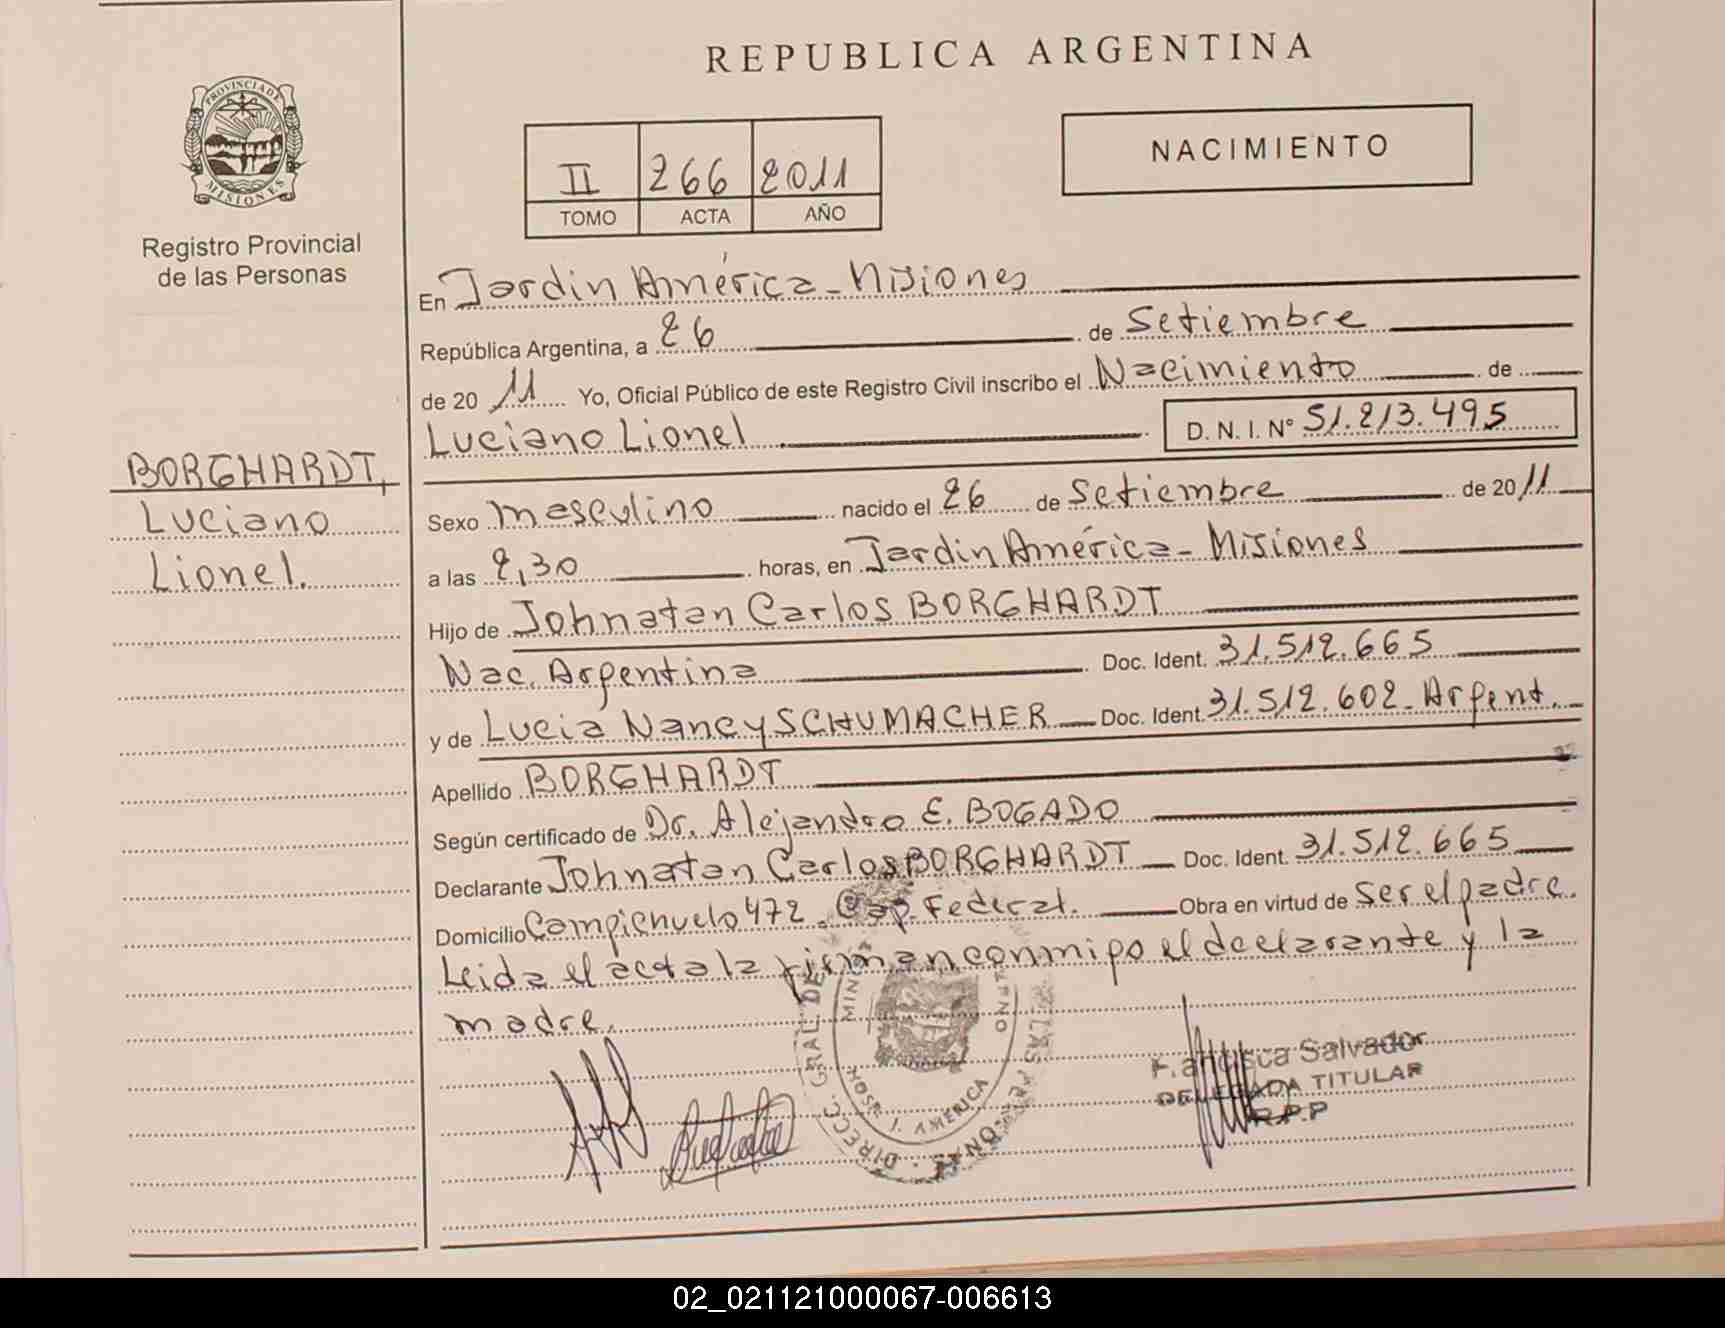 REPUBLICA ARGENTINA
PROVINCIA DE
MISIONES
Registro Provincial
de las Personas
II 266 2011
TOMO ACTA AÑO
NACIMIENTO
En Jardin América - Misiones
República Argentina, a 26 de Setiembre
de 20 11 Yo, Oficial Público de este Registro Civil inscribo el Nacimiento de
Luciano Lionel D. N. I. Nº 51.213.495
BORGHARDT,
Luciano
Lionel.
Sexo masculino nacido el 26 de Setiembre de 20 11
a las 2,30 horas, en Jardin América - Misiones
Hijo de Johnatan Carlos BORGHARDT
Nac. Argentina Doc. Ident. 31.512.665
y de Lucia Nancy SCHUMACHER Doc. Ident. 31.512.602 - Argent.
Apellido BORGHARDT
Según certificado de Dr. Alejandro E. BOGADO
Declarante Johnatan Carlos BORGHARDT Doc. Ident. 31.512.665
Domicilio Campichuelo 472. Cap. Federal. Obra en virtud de ser el padre.
Leida el acta la firman conmigo el declarante y la
madre.
DIREC. GRAL. DE LAS PERSONAS
J. AMERICA
Francisca Salvador
DELEGADA TITULAR
R.P.P
02_021121000067-006613